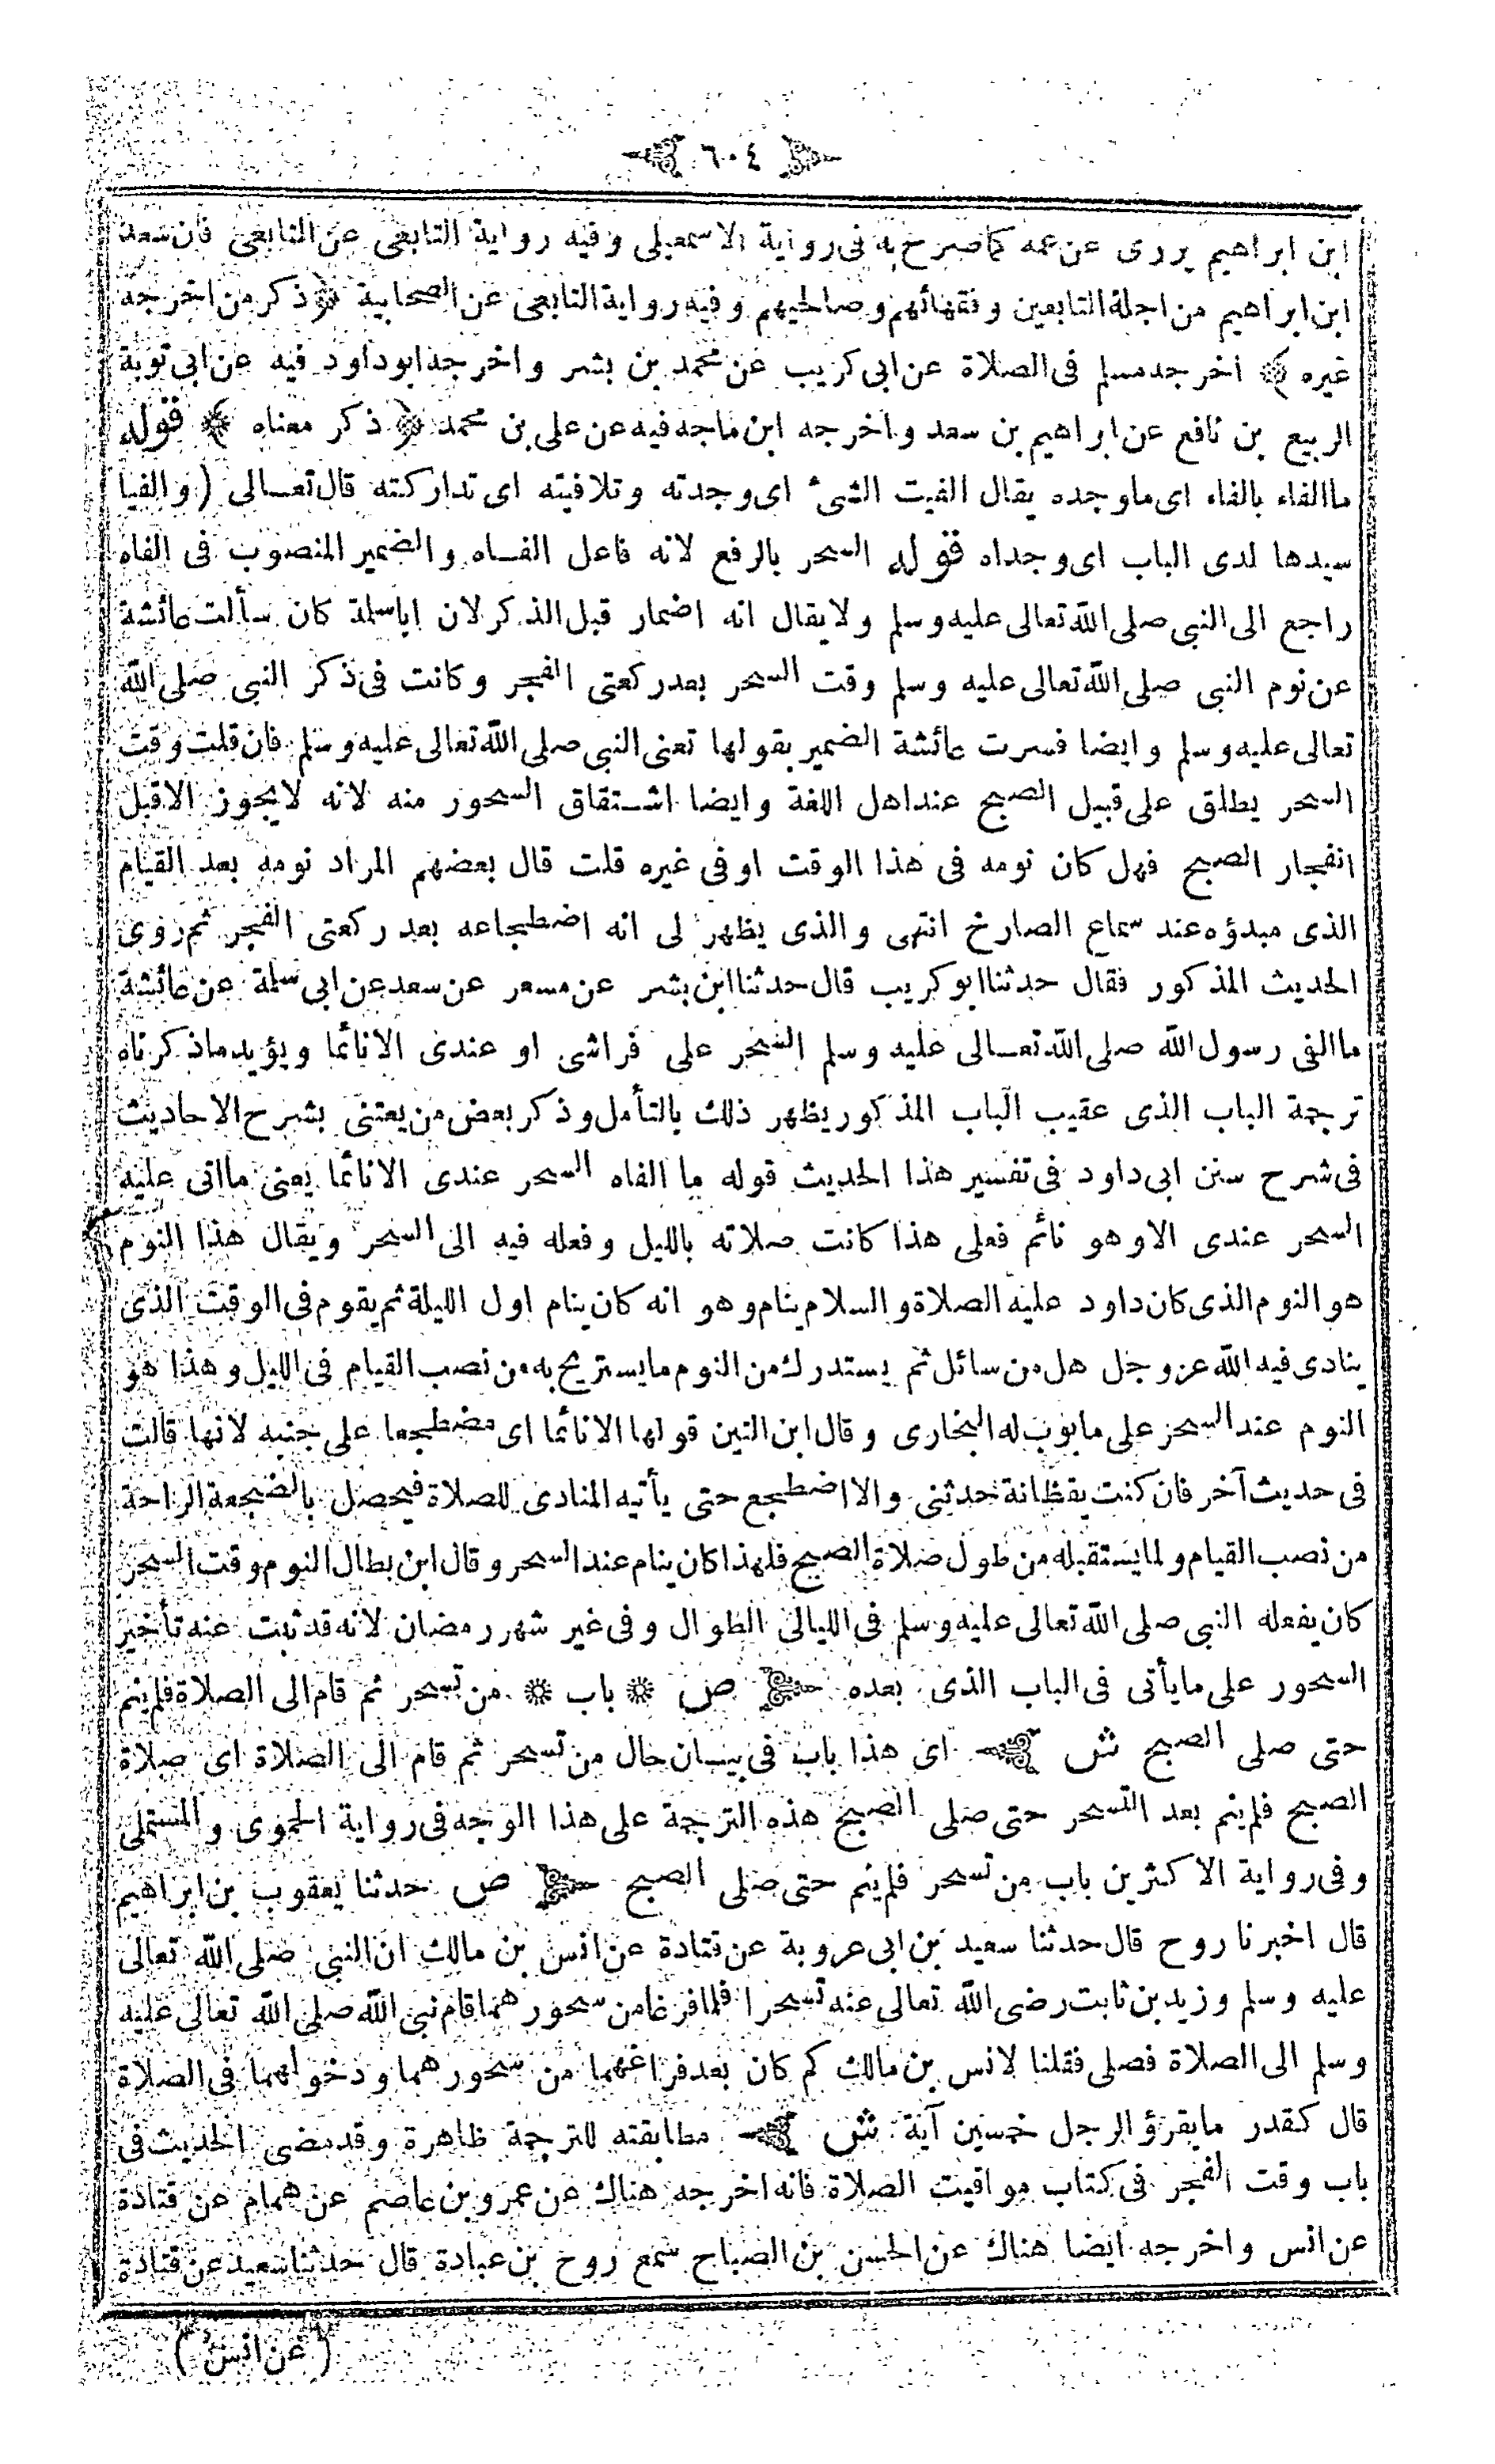 ٦٠٤
ابن ابراهيم يروى عن عمه كما صرح به فى رواية الاسمعيلى وفيه رواية التابعى عن التابعى فان سعد
ابن ابراهيم من اجلة التابعين وفقهائهم وصالحيهم وفيه رواية التابعى عن الصحابية ﴿ ذكر من اخرجه
غيره ﴾ اخرجه مسلم فى الصلاة عن ابى كريب عن محمد بن بشر واخرجه ابو داود فيه عن ابى توبة
الربيع بن نافع عن ابراهيم بن سعد واخرجه ابن ماجه فيه عن على بن محمد ﴿ ذكر معناه ﴾ قوله
ما الفاه بالفاء اى ماوجده يقال الفيت الشئ اى وجدته وتلافيته اى تداركته قال تعالى ( والفيا
سيدها لدى الباب اى وجداه قوله السحر بالرفع لانه فاعل الفاه والضمير المنصوب فى الفاه
راجع الى النبى صلى الله تعالى عليه وسلم ولايقال انه اضمار قبل الذكر لان اباسلمة كان سألت عائشة
عن نوم النبى صلى الله تعالى عليه وسلم وقت السحر بعد ركعتى الفجر وكانت فى ذكر النبى صلى الله
تعالى عليه وسلم وايضا فسرت عائشة الضمير بقولها تعنى النبى صلى الله تعالى عليه وسلم فان قلت وقت
السحر يطلق على قبيل الصبح عند اهل اللغة وايضا اشتقاق السحور منه لانه لايجوز الاقبل
انفجار الصبح فهل كان نومه فى هذا الوقت اوفى غيره قلت قال بعضهم المراد نومه بعد القيام
الذى مبدؤه عند سماع الصارخ انتهى والذى يظهر لى انه اضطجاعه بعد ركعتى الفجر ثم روى
الحديث المذكور فقال حدثنا ابو كريب قال حدثنا ابن بشر عن مسعر عن سعد عن ابى سلمة عن عائشة
ما الفى رسول الله صلى الله تعالى عليه وسلم السحر على فراشى او عندى الانائما ويؤيد ماذكرناه
ترجمة الباب الذى عقيب الباب المذكور يظهر ذلك بالتأمل وذكر بعض من يعتنى بشرح الاحاديث
فى شرح سنن ابى داود فى تفسير هذا الحديث قوله ما الفاه السحر عندى الانائما يعنى ما اتى عليه
السحر عندى الا وهو نائم فعلى هذا كانت صلاته بالليل وفعله فيه الى السحر ويقال هذا النوم
هو النوم الذى كان داود عليه الصلاة والسلام ينام وهو انه كان ينام اول الليلة ثم يقوم فى الوقت الذى
ينادى فيه الله عز وجل هل من سائل ثم يستدرك من النوم مايستريح به من نصب القيام فى الليل وهذا هو
النوم عند السحر على مابوب له البخارى وقال ابن التين قولها الانائما اى مضطجعا على جنبه لانها قالت
فى حديث آخر فان كنت يقظانة حدثنى والا اضطجع حتى يأتيه المنادى للصلاة فيحصل بالضجعة الراحة
من نصب القيام ولمايستقبله من طول صلاة الصبح فلهذا كان ينام عند السحر وقال ابن بطال النوم وقت السحر
كان يفعله النبى صلى الله تعالى عليه وسلم فى الليالى الطوال وفى غير شهر رمضان لانه قد ثبت عنه تأخير
السحور على مايأتى فى الباب الذى بعده ص * باب * من تسحر ثم قام الى الصلاة فلم ينم
حتى صلى الصبح ش اى هذا باب فى بيان حال من تسحر ثم قام الى الصلاة اى صلاة
الصبح فلم ينم بعد التسحر حتى صلى الصبح هذه الترجمة على هذا الوجه فى رواية الحموى والمستملى
وفى رواية الاكثرين باب من تسحر فلم ينم حتى صلى الصبح ص حدثنا يعقوب بن ابراهيم
قال اخبرنا روح قال حدثنا سعيد بن ابى عروبة عن قتادة عن انس بن مالك ان النبى صلى الله تعالى
عليه وسلم وزيد بن ثابت رضى الله تعالى عنه تسحرا فلما فرغا من سحورهما قام نبى الله صلى الله تعالى عليه
وسلم الى الصلاة فصلى فقلنا لانس بن مالك كم كان بعد فراغهما من سحورهما ودخولهما فى الصلاة
قال كقدر مايقرؤ الرجل خمسين آية ش مطابقته للترجمة ظاهرة وقد مضى الحديث فى
باب وقت الفجر فى كتاب مواقيت الصلاة فانه اخرجه هناك عن عمرو بن عاصم عن همام عن قتادة
عن انس واخرجه ايضا هناك عن الحسن بن الصباح سمع روح بن عبادة قال حدثنا سعيد عن قتادة
( عن انس )